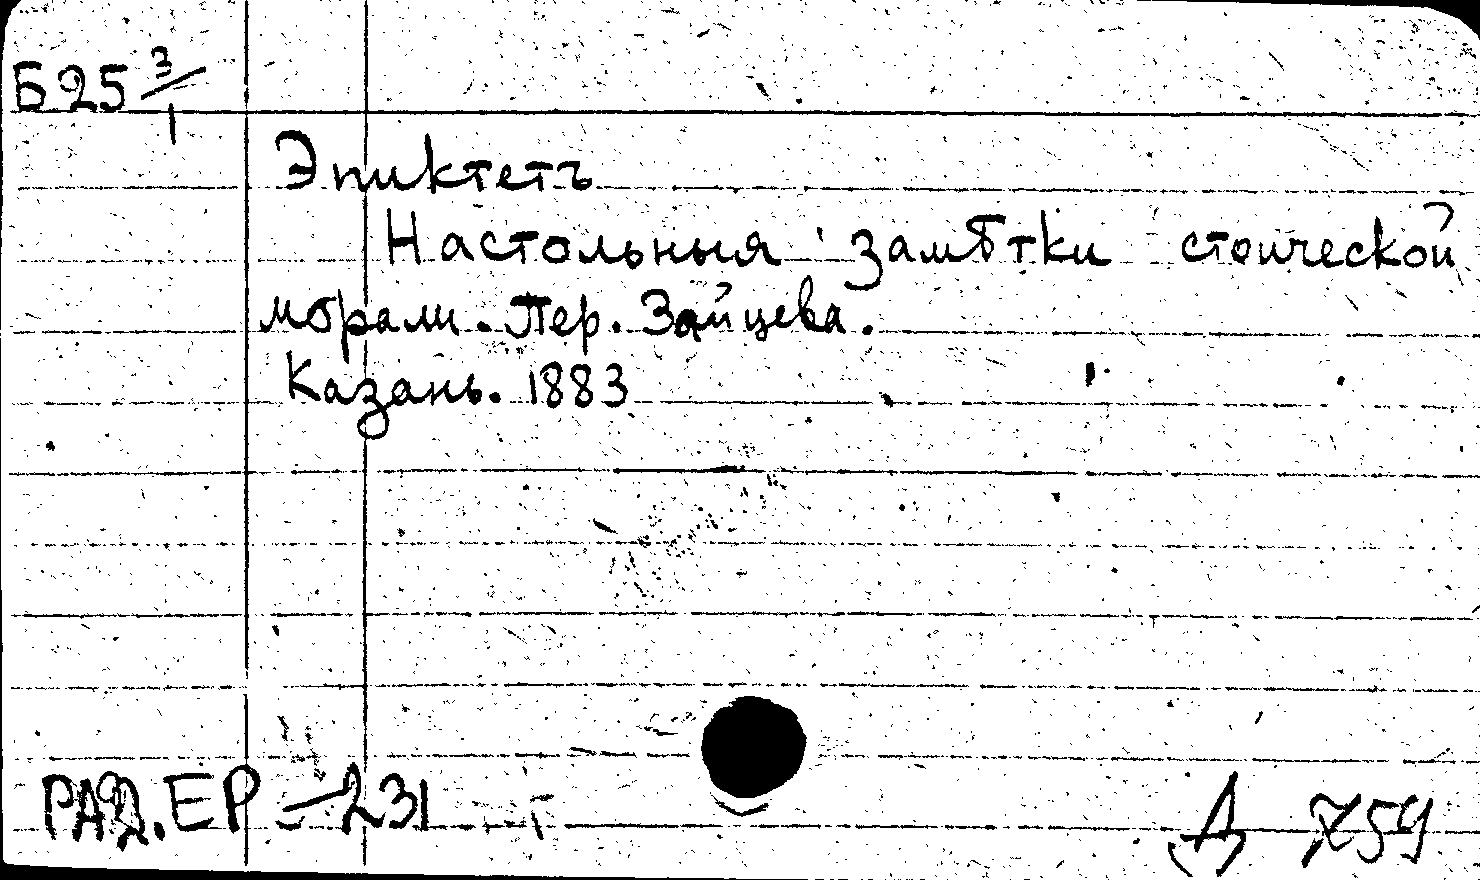 Б25 3/1
Эпиктетъ
Настольныя замѣтки стоической
морали. Пер. Зайцева.
Казань. 1883
РАД. ЕР - 231
Д 759